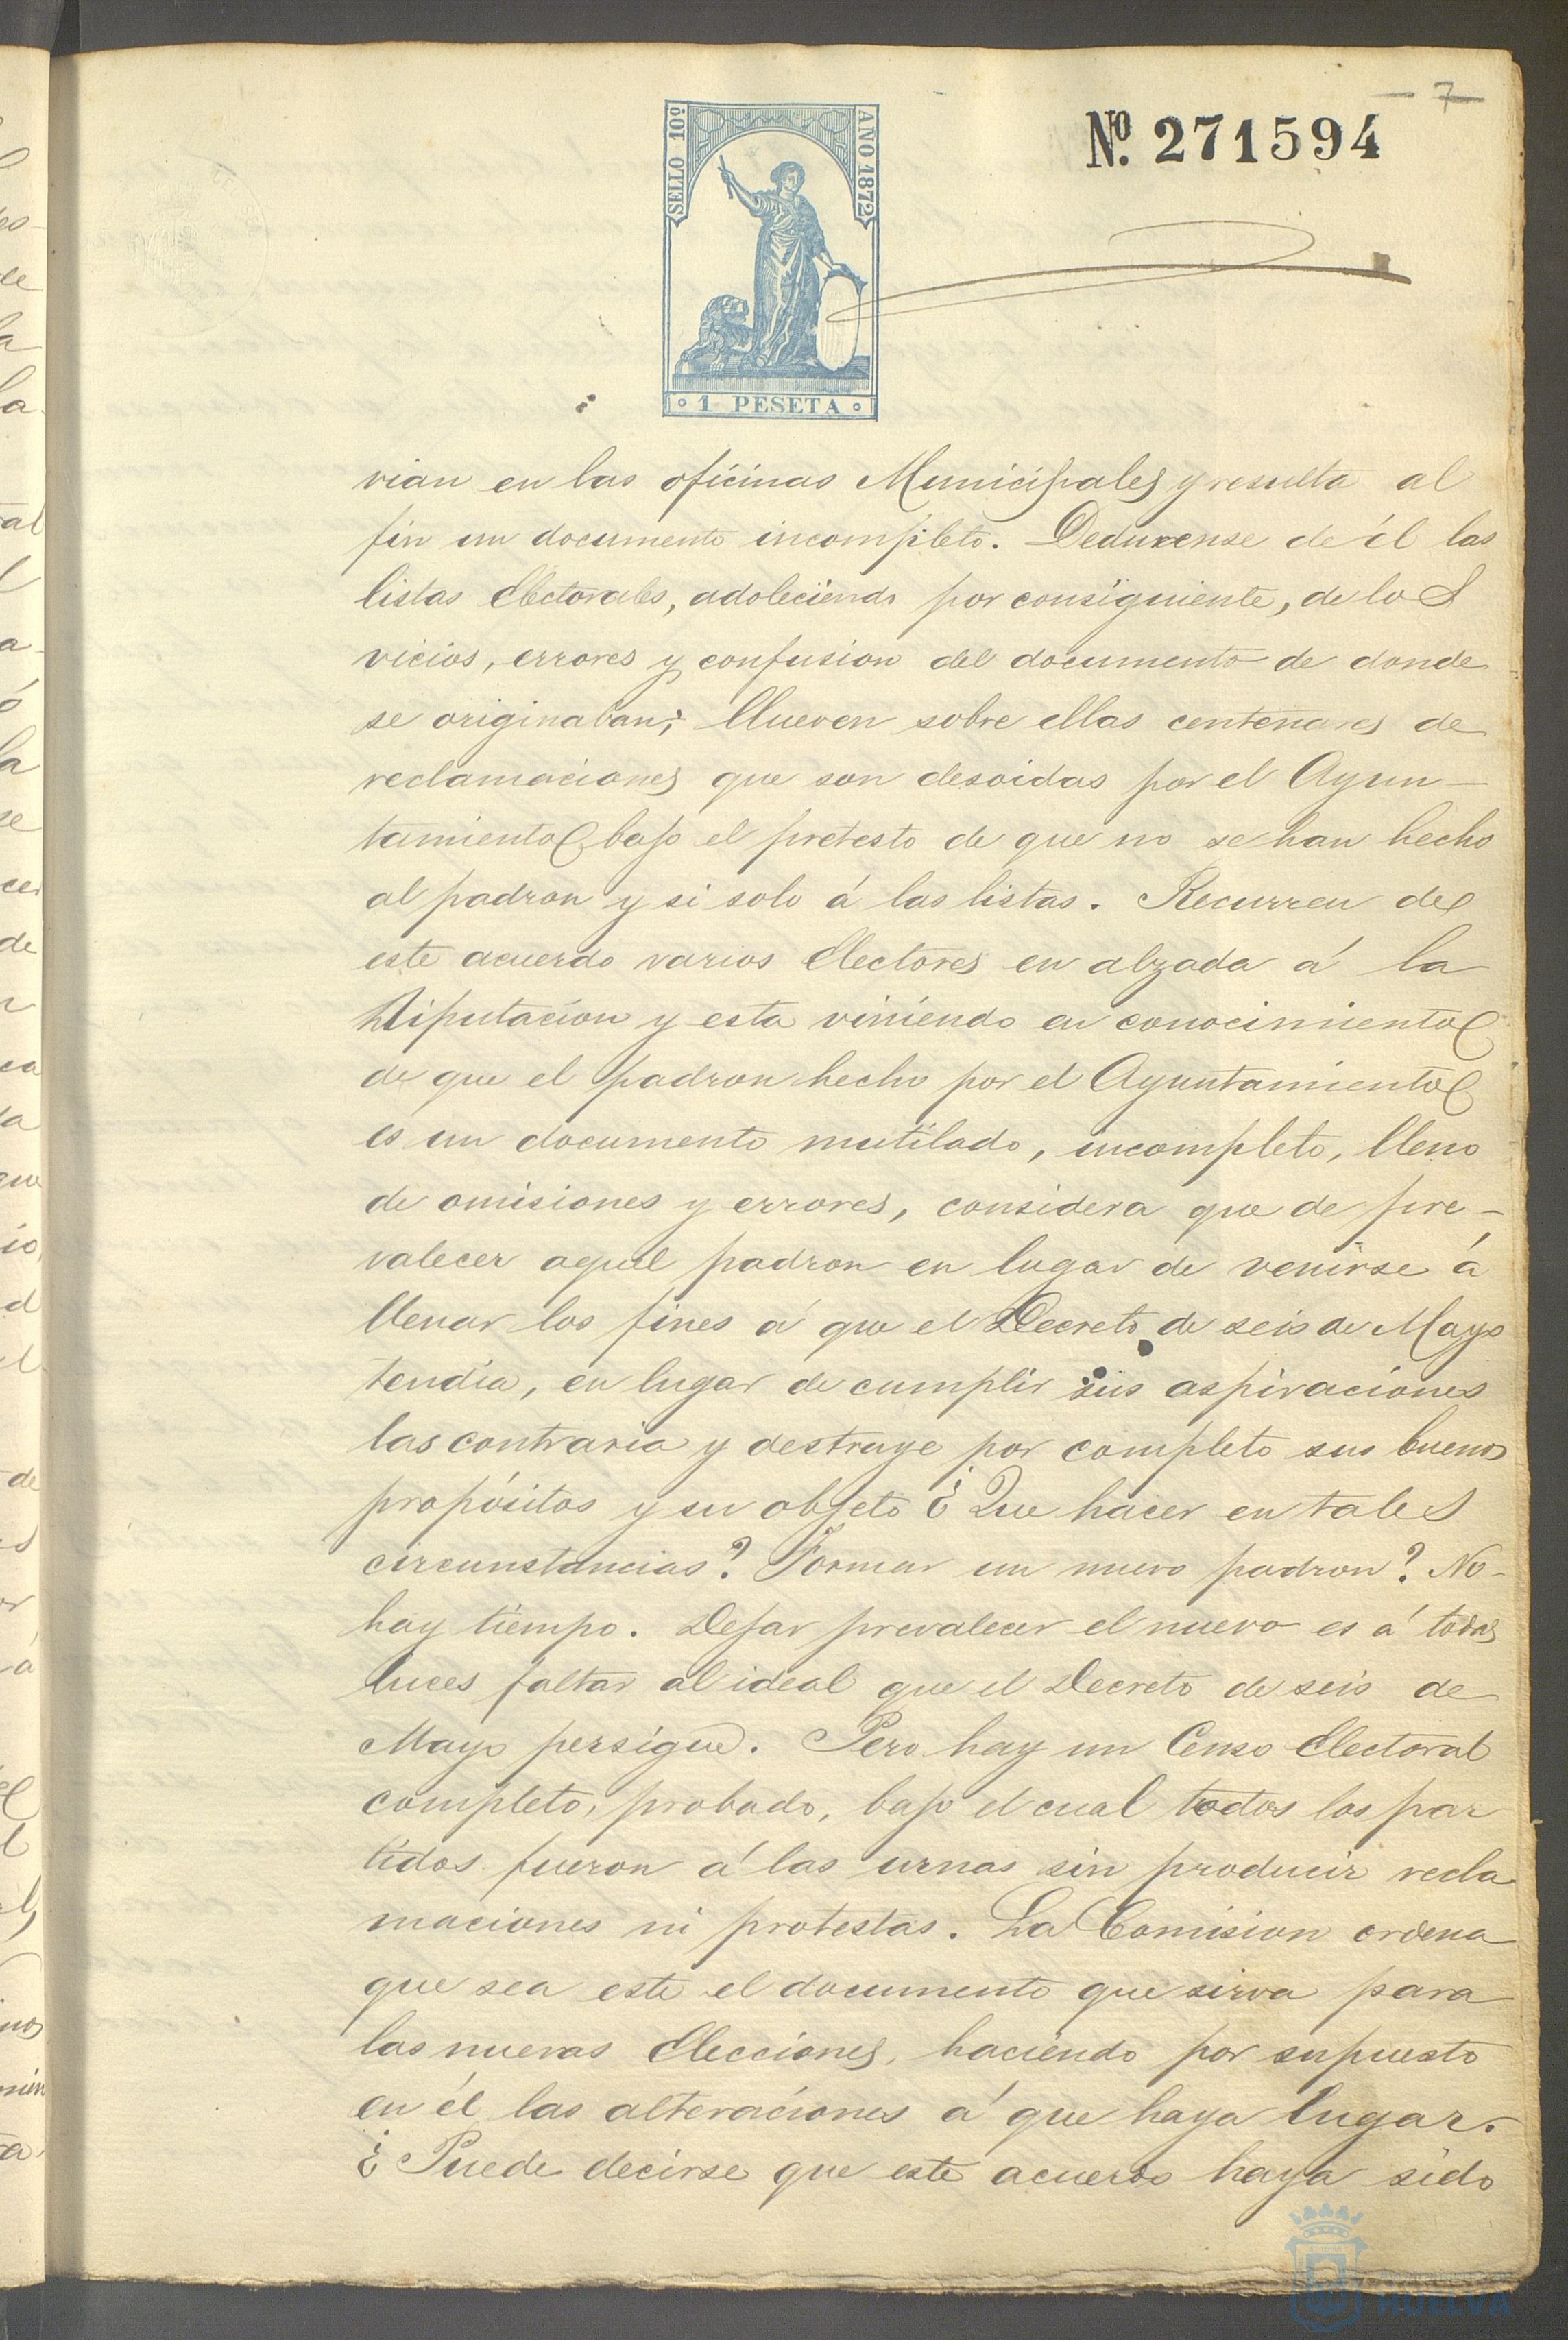 7
Nº. 271594
SELLO 10º
AÑO 1872
1 PESETA
vian en las oficinas Municipales y resulta al
fin un documento incompleto. Deducense de él las
listas Electorales, adoleciendo por consiguiente, de los
vicios, errores y confusion del documento de donde
se originaban; llueven sobre ellas centenares de
reclamaciones que son desoidas por el Ayun-
tamiento bajo el pretesto de que no se han hecho
al padron y si solo á las listas. Recurren de
este acuerdo varios Electores en alzada á la
Diputacion y esta viniendo en conocimiento
de que el padron hecho por el Ayuntamiento
es un documento mutilado, incompleto, lleno
de omisiones y errores, considera que de pre-
valecer aquel padron en lugar de venirse á
llenar los fines á que el Decreto de seis de Mayo
tendia, en lugar de cumplir sus aspiraciones
las contraria y destruye por completo sus buenos
propósitos y su objeto ¿Que hacer en tales
circunstancias? Formar un nuevo padron? No
hay tiempo. Dejar prevalecer el nuevo es á todas
luces faltar al ideal que el Decreto de seis de
Mayo persigue. Pero hay un Censo Electoral
completo, probado, bajo el cual todos los par
tidos fueron á las urnas sin producir recla
maciones ni protestas. La Comision ordena
que sea este el documento que sirva para
las nuevas Elecciones, haciendo por supuesto
en él las alteraciones á que haya lugar.
¿Puede decirse que este acuerdo haya sido
HUELVA